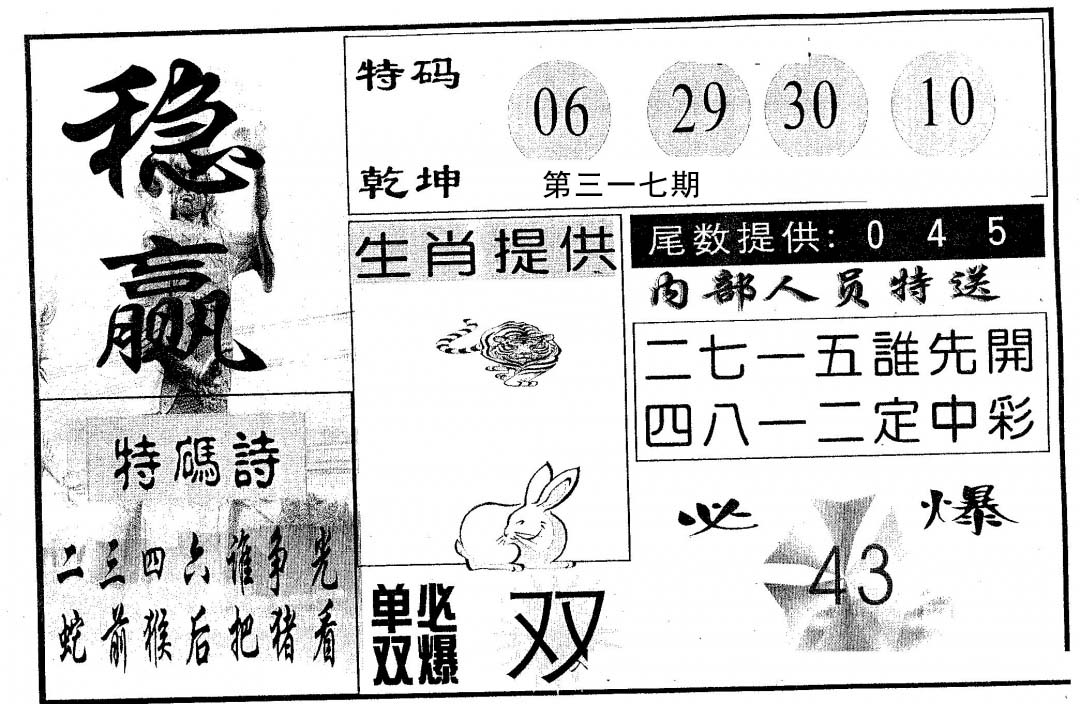 稳
赢
特码
乾坤
06 29 30 10
第三一七期
生肖提供
尾数提供: 0 4 5
内部人员特送
二七一五誰先開
四八一二定中彩
特碼詩
二三四六谁争光
蛇前猴后把猪看
必爆
43
单双
必爆
双